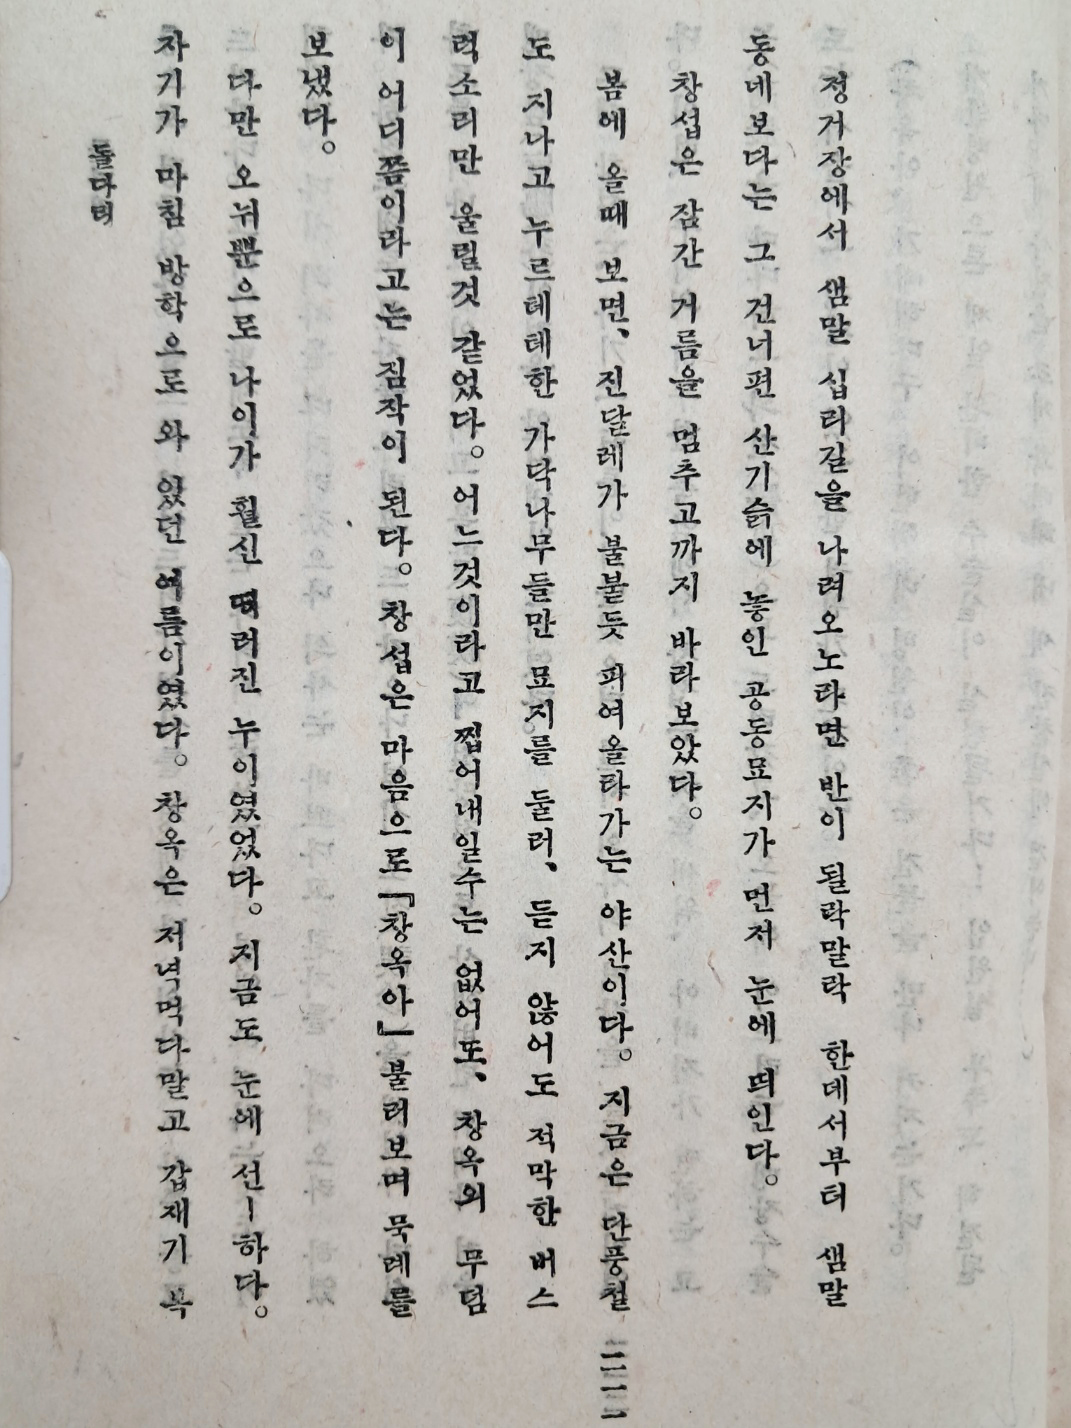 정거장에서 샘말 십리길을 나려오노라면 반이 될락말락 한데서부터 샘말
동네보다는 그 건너편 산기슭에 놓인 공동묘지가 먼저 눈에 띄인다。
창섭은 잠간 거름을 멈추고까지 바라보았다。
봄에 올때 보면、 진달레가 불붙듯 피여올라가는 야산이다。 지금은 단풍철
도 지나고 누르테테한 가닥나무들만 묘지를 둘러、 듣지 않어도 적막한 버스
럭소리만 울릴것 같었다。 어느것이라고 찝어내일수는 없어또、 창옥의 무덤
이 어디쯤이라고는 짐작이 된다。 창섭은 마음으로 「창옥아」 불러보며 묵례를
보냈다。
다만 오뉘뿐으로 나이가 훨신 떠러진 누이였었다。 지금도 눈에 선ㅡ하다。
자기가 마침 방학으로 와 있던 여름이였다。 창옥은 저녁먹다말고 갑재기 복
돌다리